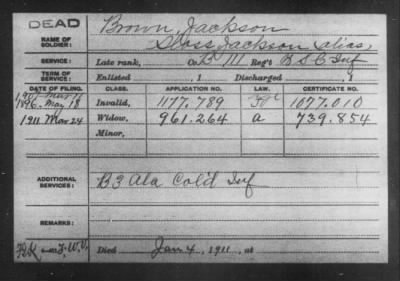 DEAD
NAME OF SOLDIER: Brown, Jackson
Sloss, Jackson (alias)
SERVICE: Late rank, Co. B, 111 Reg't U S C Inf
TERM OF SERVICE: Enlisted , 1 Discharged , 1
DATE OF FILING. CLASS. APPLICATION NO. LAW. CERTIFICATE NO.
1896. May 18 Invalid, 1177.789 1077.010
1911 Mar 24 Widow, 961.264 a 739.854
Minor,
ADDITIONAL SERVICES: B 3 Ala Cold Inf
REMARKS:
Died Jan 4, 1911, at